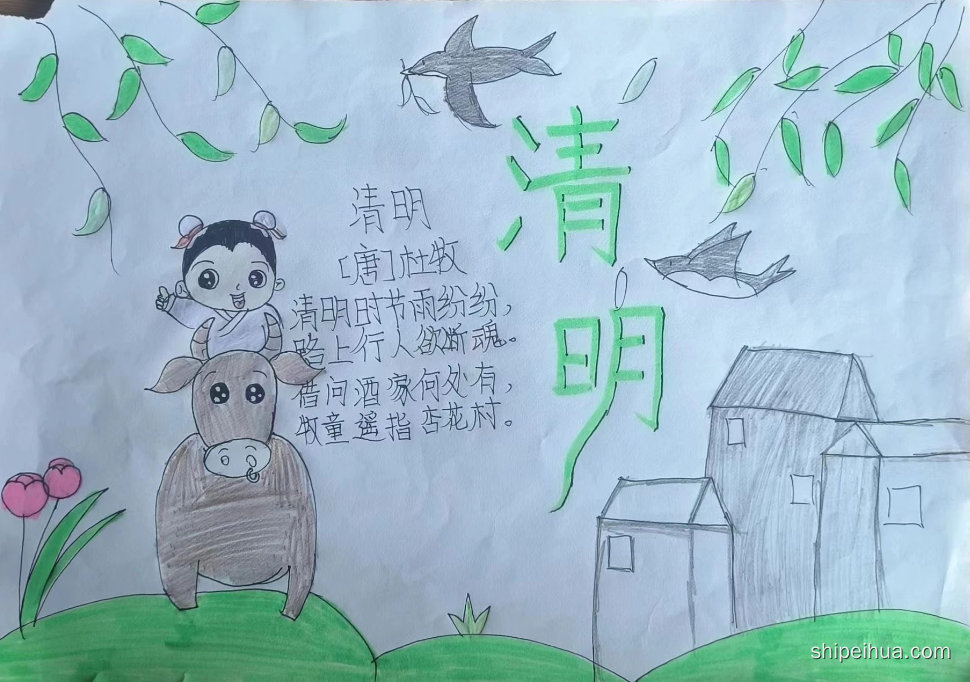 清明
清明
[唐]杜牧
清明时节雨纷纷，
路上行人欲断魂。
借问酒家何处有，
牧童遥指杏花村。
shipeihua.com